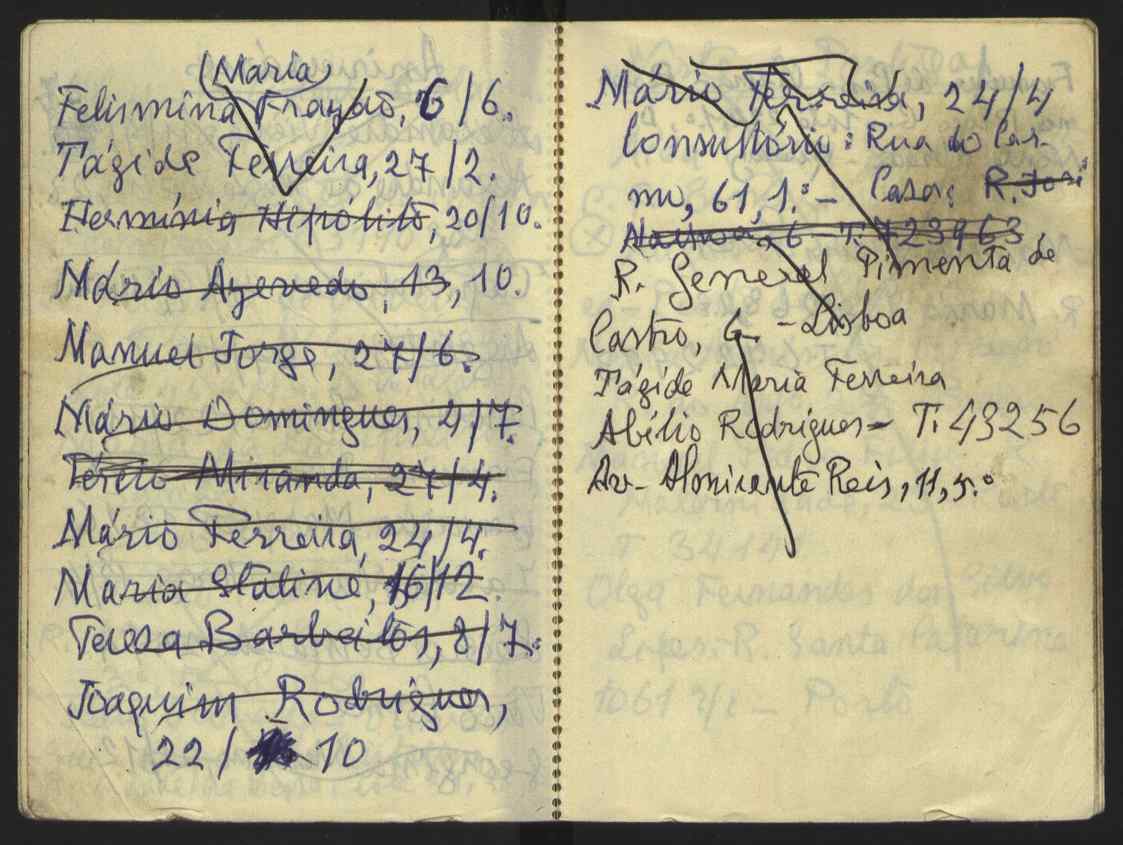 (Maria)
Felismina Frazão, 6/6.
Tágide Ferreira, 27/2.
Hermínia Hipólito, 20/10.
Mário Azevedo, 13, 10.
Manuel Jorge, 27/6.
Mário Domingues, 4/7.
Tércio Miranda, 27/4.
Mário Ferreira, 24/4.
Maria Staline, 16/12.
Teresa Barbeitos, 8/7.
Joaquim Rodrigues,
22/ 10
Mario Ferreira, 24/4
Consultório: Rua do Car-
mo, 61, 1.º - Casa: R. José
6 T. 723963
R. General Pimenta de
Castro, 6 - Lisboa
Tágide Maria Ferreira
Abílio Rodrigues - T. 43256
Av. Almirante Reis, 11, 5.º
T 34141
Olga Fernandes da Silva
Lopes. R. Santa Catarina
1061 - Porto